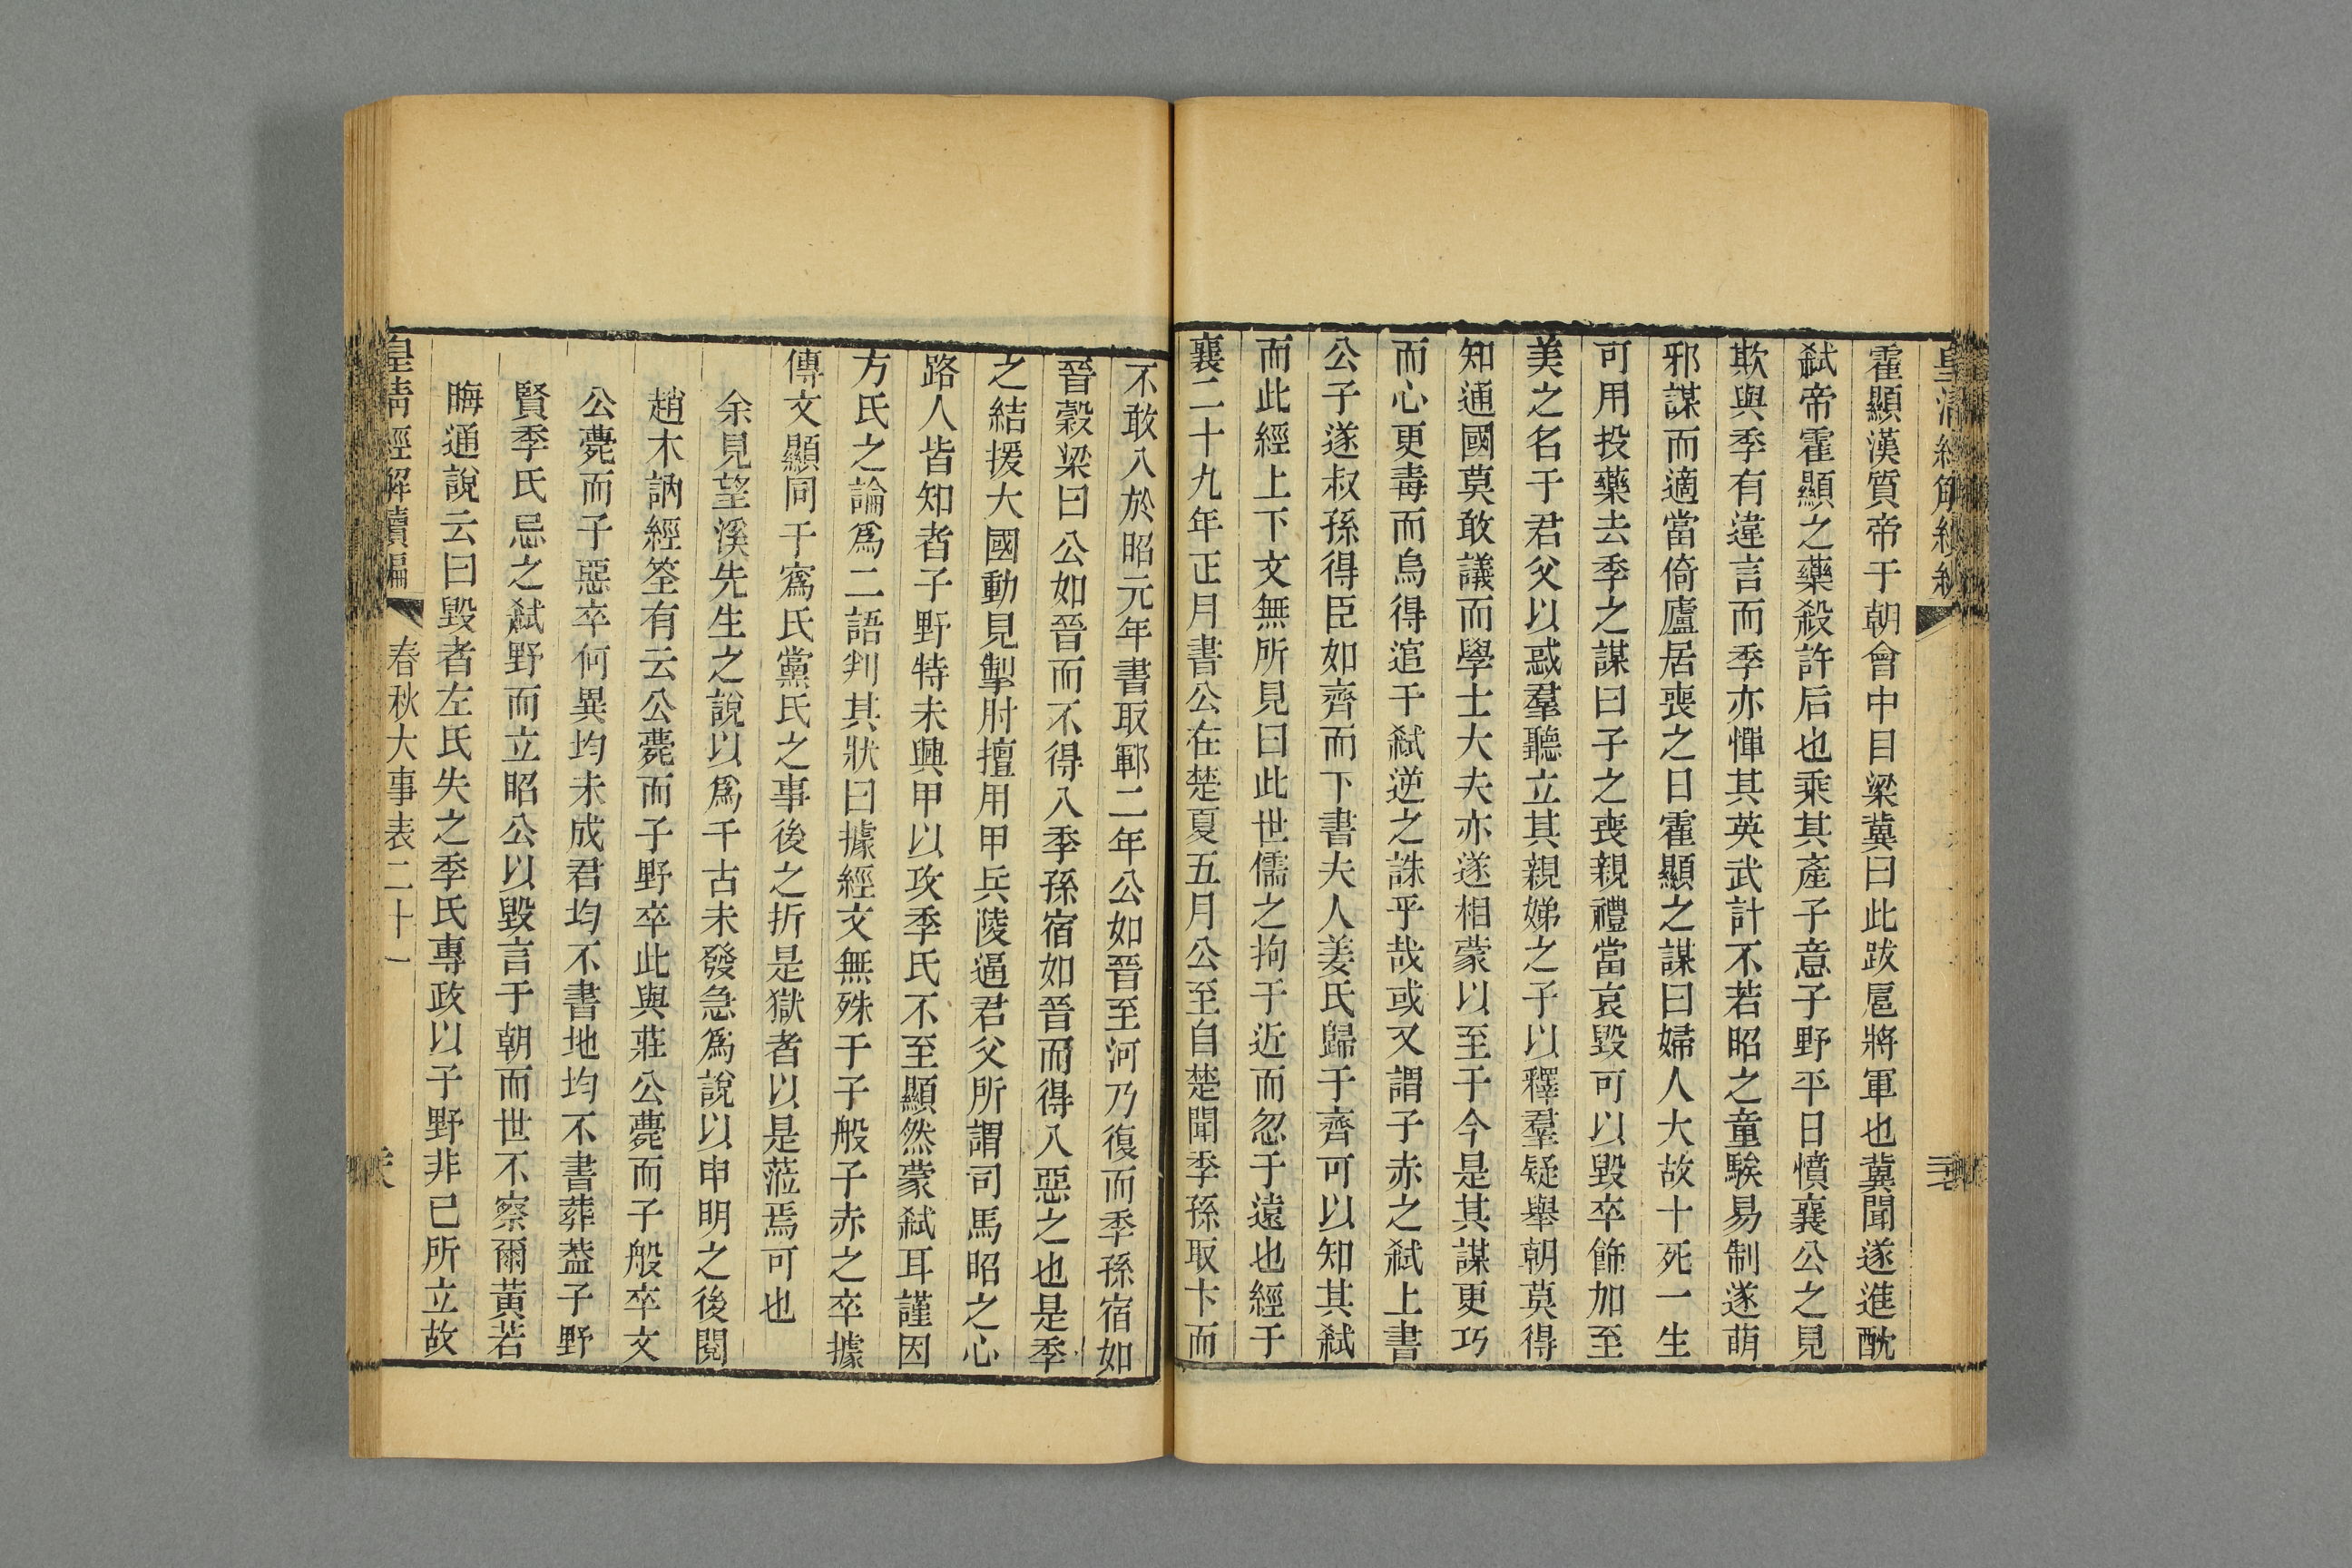 霍顯漢質帝于朝會中目梁冀曰此跋扈將軍也冀聞遂進酖
弑帝霍顯之藥殺許后也乘其產子意子野平日憤襄公之見
欺與季有違言而季亦憚其英武計不若昭之童騃易制遂萌
邪謀而適當倚廬居喪之日霍顯之謀曰婦人大故十死一生
可用投藥去季之謀曰子之喪親禮當哀毀可以毀卒飾加至
美之名于君父以惑羣聽立其親娣之子以釋羣疑舉朝莫得
知通國莫敢議而學士大夫亦遂相蒙以至于今是其謀更巧
而心更毒而烏得逭于弑逆之誅乎哉或又謂子赤之弑上書
公子遂叔孫得臣如齊而下書夫人姜氏歸于齊可以知其弑
而此經上下文無所見曰此世儒之拘于近而忽于遠也經于
襄二十九年正月書公在楚夏五月公至自楚聞季孫取卞而
不敢入於昭元年書取鄆二年公如晉至河乃復而季孫宿如
晉穀梁曰公如晉而不得入季孫宿如晉而得入惡之也是季
之結援大國動見掣肘擅用甲兵陵逼君父所謂司馬昭之心
路人皆知者子野特未興甲以攻季氏不至顯然蒙弑耳謹因
方氏之論爲二語判其狀曰據經文無殊于子般子赤之卒據
傳文顯同于寪氏黨氏之事後之折是獄者以是蒞焉可也
余見望溪先生之說以爲千古未發急爲說以申明之後閱
趙木訥經筌有云公薨而子野卒此與莊公薨而子般卒文
公薨而子惡卒何異均未成君均不書地均不書葬葢子野
賢季氏忌之弑野而立昭公以毀言于朝而世不察爾黃若
晦通說云曰毀者左氏失之季氏專政以子野非已所立故
皇清經解續編
春秋大事表二十一